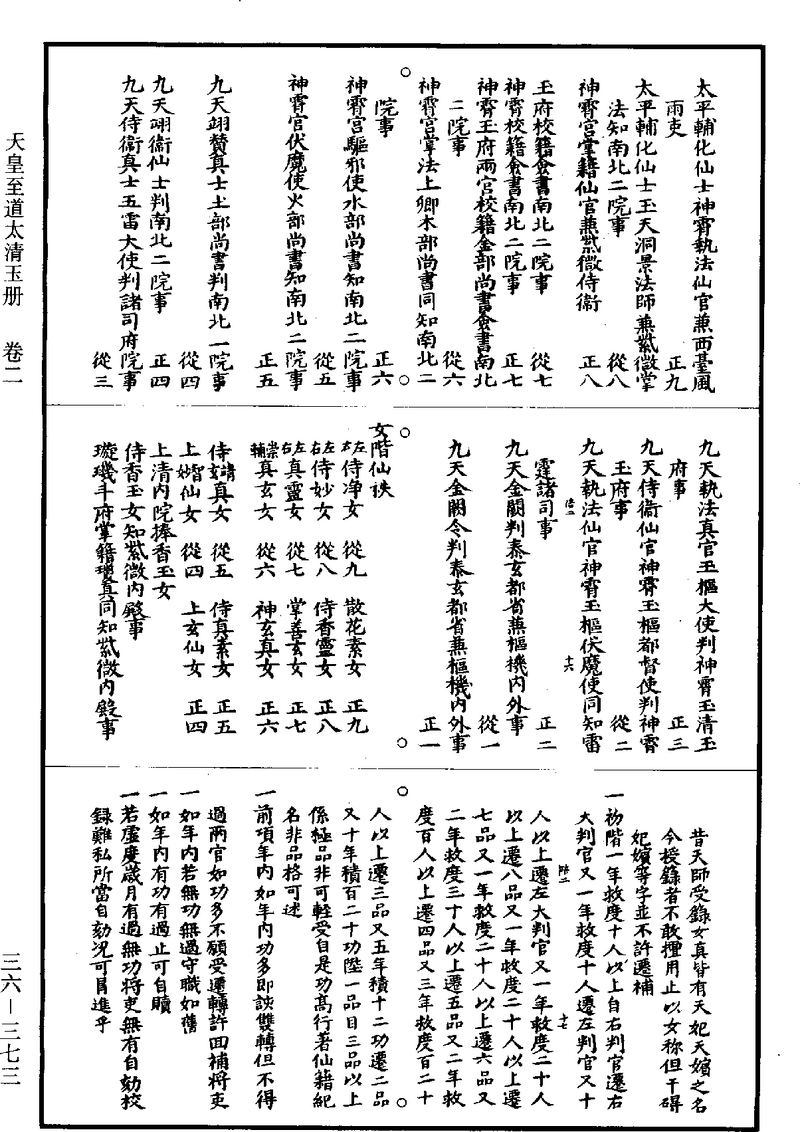 天皇至道太清玉册　卷二
三六—三七三
太平輔化仙士神霄執法仙官兼西臺風
雨吏　正九
太平輔化仙士玉天洞景法師兼紫微掌
法知南北二院事　從八
神霄宮掌籍仙官兼紫微侍衛　正八
玉府校籍僉書南北二院事　從七
神霄校籍僉書南北二院事　正七
神霄玉府兩宮校籍金部尚書僉書南北
二院事　從六
神霄宮掌法上卿木部尚書同知南北二
院事　正六
神霄宮驅邪使水部尚書知南北二院事
從五
神霄宮伏魔使火部尚書知南北二院事
正五
九天翊贊真士土部尚書判南北一院事
從四
九天翊衛仙士判南北二院事　正四
九天侍衛真士五雷大使判諸司府院事
從三
九天執法真官玉樞大使判神霄玉清玉
府事　正三
九天侍衛仙官神霄玉樞都督使判神霄
玉府事　從二
九天執法仙官神霄玉樞伏魔使同知雷
霆諸司事　正二
九天金闕判泰玄都省兼樞機內外事
從一
九天金闕令判泰玄都省兼樞機內外事
正一
女階仙秩
左右侍净女　從九　散花素女　正九
左右侍妙女　從八　侍香靈女　正八
左右真靈女　從七　掌善玄女　正七
崇輔真玄女　從六　神玄真女　正六
侍靖玄真女　從五　侍真素女　正五
上嬪仙女　從四　上玄仙女　正四
上清內院捧香玉女
侍香玉女知紫微內殿事
璇璣斗府掌籍瓊真同知紫微內殿事
昔天師受錄女真皆有天妃天嬪之名
今授錄者不敢擅用止以女称但干碍
妃嬪等字並不許遷補
一初階一年救度十人以上自右判官遷右
大判官又一年救度十人遷左判官又十
人以上遷左大判官又一年救度二十人
以上遷八品又一年救度二十人以上遷
七品又一年救度二十人以上遷六品又
二年救度三十人以上遷五品又二年救
度百人以上遷四品又三年救度百二十
人以上遷三品又五年積十二功遷二品
又十年積百二十功陞一品目三品以上
係極品非可輕受自是功高行著仙籍紀
名非品格可述
一前項年內如年內功多即該雙轉但不得
過兩官如功多不願受遷轉許回補將吏
一如年內若無功無過守職如舊
一如年內有功有過止可自贖
一若虛度歲月有過無功將吏無有自劾校
録難私所當自劾况可冐進乎